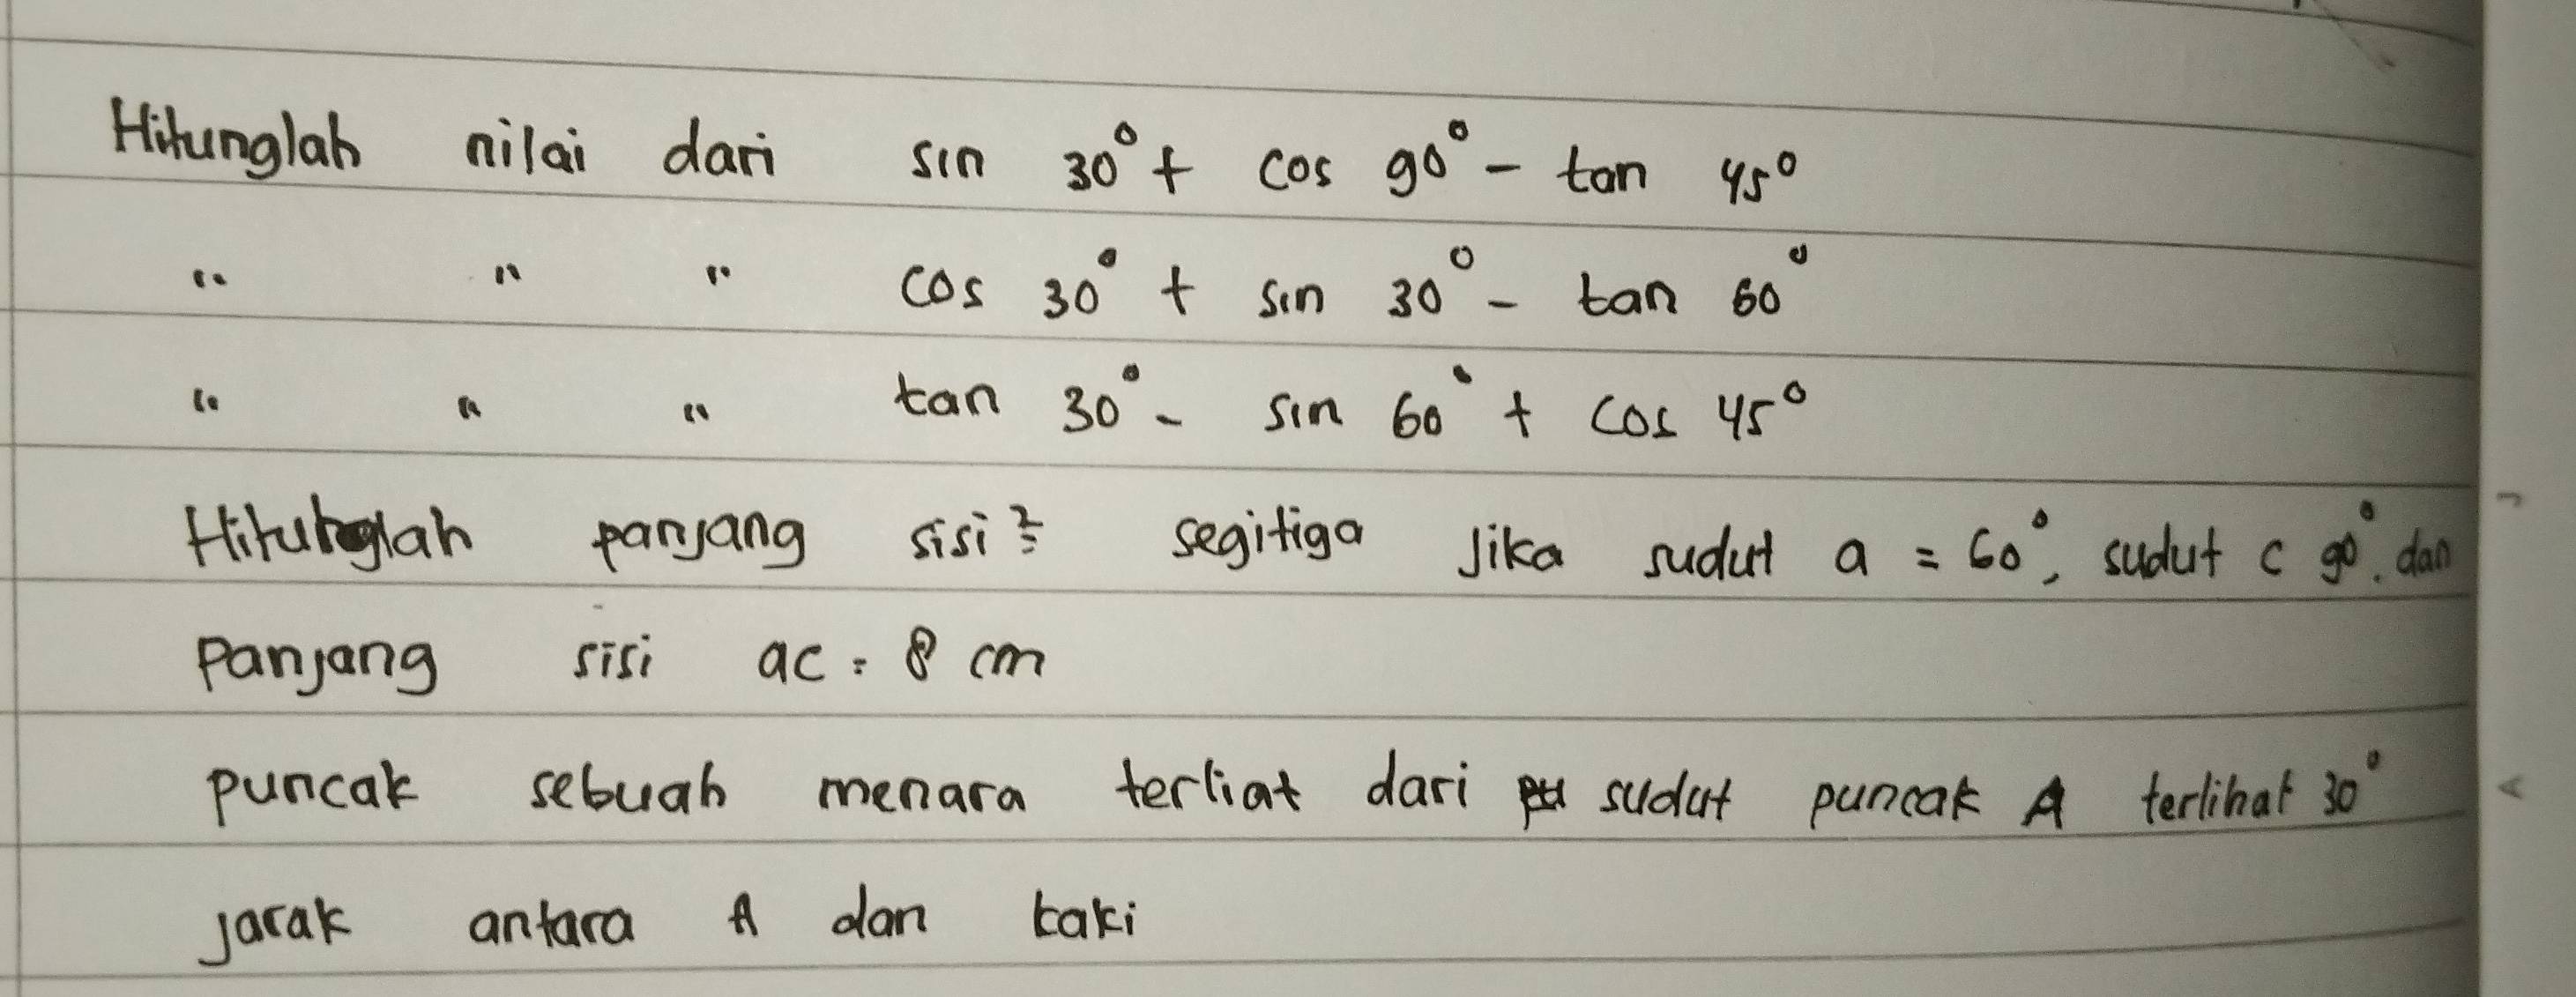 Hitunglah nilai dari sin 30° + cos 90° - tan 45°
" " " cos 30° + sin 30° - tan 60°
" " " tan 30° - sin 60° + cos 45°
Hitunglah panjang sisi² segitiga jika sudut a = 60°, sudut c 90°, dan
Panjang sisi ac = 8 cm
puncak sebuah menara terliat dari sudut puncak A terlihat 30°
jarak antara A dan kaki